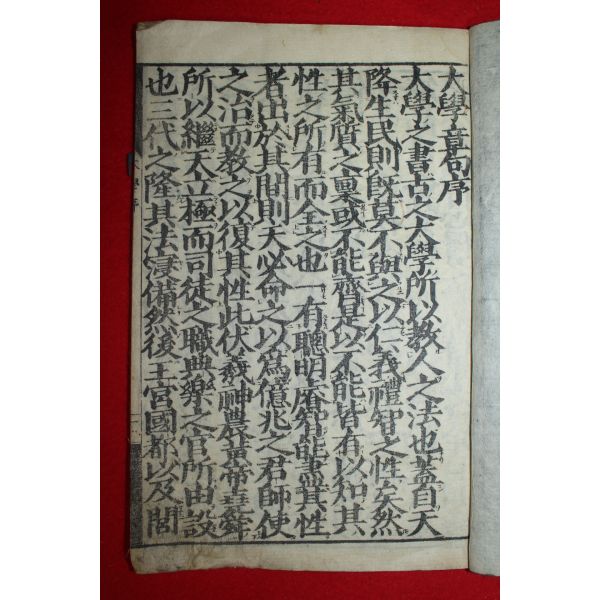 大學章句序
大學之書古之大學所以教人之法也蓋自天
降生民則旣莫不與之以仁義禮智之性矣然
其氣質之稟或不能齊是以不能皆有以知其
性之所有而全之也一有聰明睿智能盡其性
者出於其間則天必命之以爲億兆之君師使
之治而教之以復其性此伏羲神農黃帝堯舜
所以繼天立極而司徒之職典樂之官所由設
也三代之隆其法寖備然後王宮國都以及閭